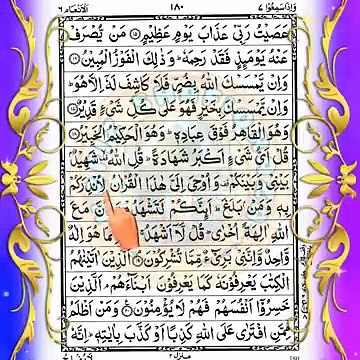 وَاِذَا سَمِعُوْا ٧ ١٨٠ اَلْاَنْعَام ٦
عَصَيْتُ رَبِّيْ عَذَابَ يَوْمٍ عَظِيْمٍ ۝١٥ مَنْ يُّصْرَفْ
عَنْهُ يَوْمَىِٕذٍ فَقَدْ رَحِمَهٗ ؕ وَذٰلِكَ الْفَوْزُ الْمُبِيْنُ ۝١٦
وَاِنْ يَّمْسَسْكَ اللّٰهُ بِضُرٍّ فَلَا كَاشِفَ لَهٗۤ اِلَّا هُوَ ؕ
وَاِنْ يَّمْسَسْكَ بِخَيْرٍ فَهُوَ عَلٰى كُلِّ شَيْءٍ قَدِيْرٌ ۝١٧
وَهُوَ الْقَاهِرُ فَوْقَ عِبَادِهٖ ؕ وَهُوَ الْحَكِيْمُ الْخَبِيْرُ ۝١٨
قُلْ اَيُّ شَيْءٍ اَكْبَرُ شَهَادَةً ؕ قُلِ اللّٰهُ شَهِيْدٌۢ
بَيْنِيْ وَبَيْنَكُمْ وَاُوْحِيَ اِلَيَّ هٰذَا الْقُرْاٰنُ لِاُنْذِرَكُمْ
بِهٖ وَمَنْۢ بَلَغَ ؕ اَىِٕنَّكُمْ لَتَشْهَدُوْنَ اَنَّ مَعَ
اللّٰهِ اٰلِهَةً اُخْرٰى ؕ قُلْ لَّاۤ اَشْهَدُ ۚ اِنَّمَا هُوَ اِلٰهٌ
وَّاحِدٌ وَّاِنَّنِيْ بَرِيْٓءٌ مِّمَّا تُشْرِكُوْنَ ۝١٩ اَلَّذِيْنَ اٰتَيْنٰهُمُ
الْكِتٰبَ يَعْرِفُوْنَهٗ كَمَا يَعْرِفُوْنَ اَبْنَآءَهُمْ ۘ اَلَّذِيْنَ
خَسِرُوْۤا اَنْفُسَهُمْ فَهُمْ لَا يُؤْمِنُوْنَ ۝٢٠ وَمَنْ اَظْلَمُ
مِمَّنِ افْتَرٰى عَلَى اللّٰهِ كَذِبًا اَوْ كَذَّبَ بِاٰيٰتِهٖ ؕ اِنَّهٗ
منزل ٢